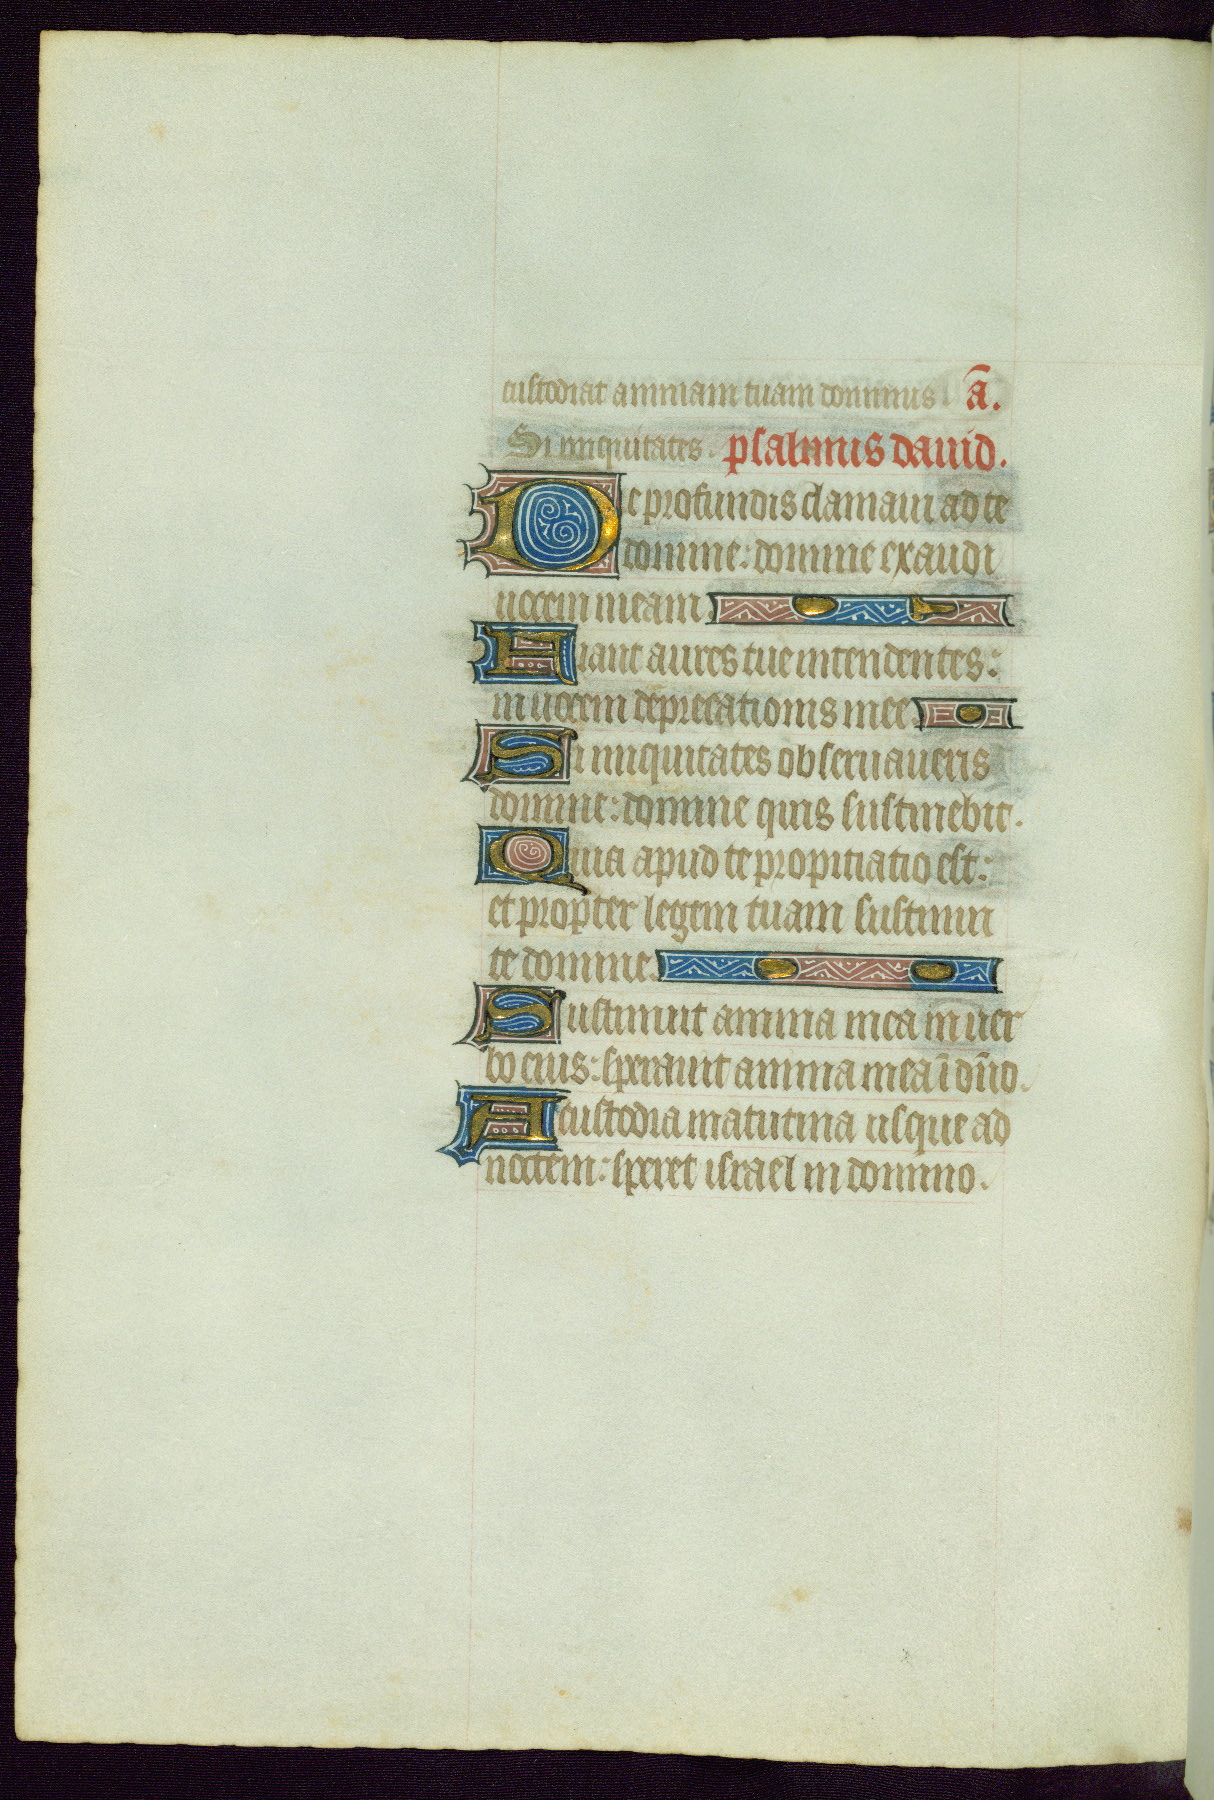 custodiat animam tuam dominus. ā.
Si iniquitates. psalmus dauid.
De profundis clamaui ad te
domine: domine exaudi
uocem meam.
Fiant aures tue intendentes:
in uocem deprecationis mee.
Si iniquitates obseruaueris
domine: domine quis sustinebit.
Quia apud te propitiatio est:
et propter legem tuam sustinui
te domine.
Sustinuit anima mea in uer
bo eius: sperauit anima mea ī dn̄o.
A custodia matutina usque ad
noctem: speret israel in domino.